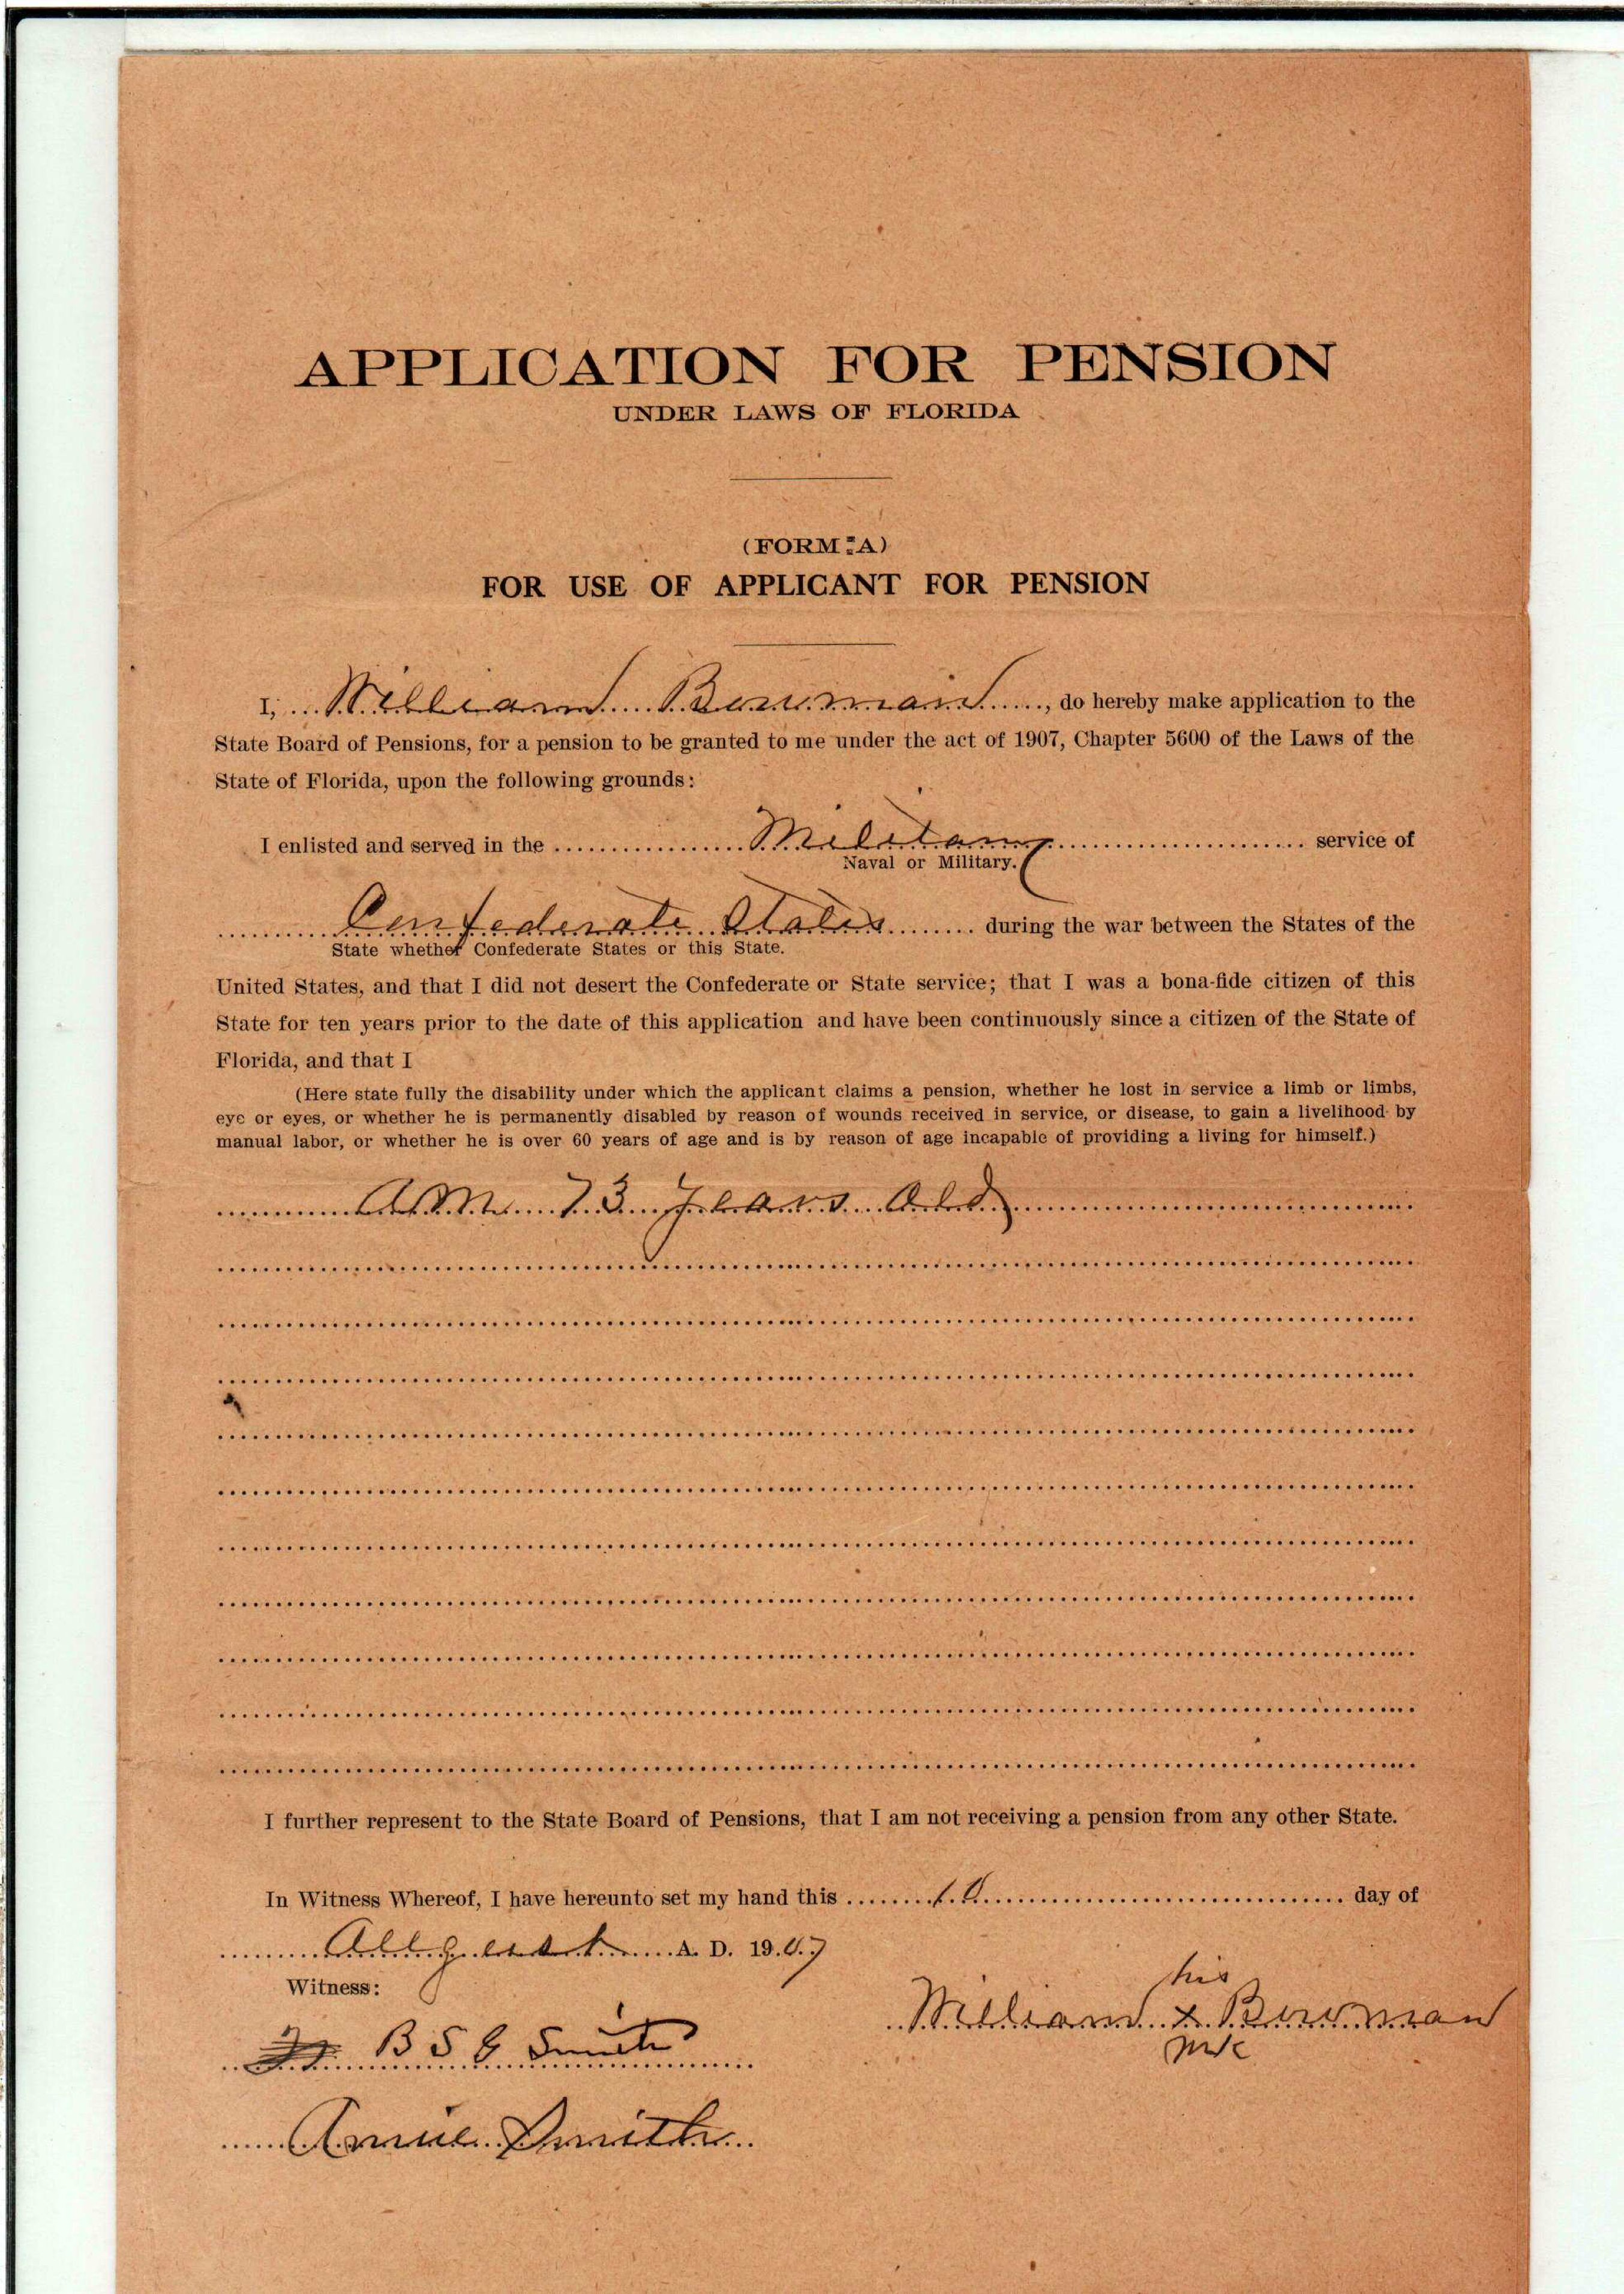 APPLICATION FOR PENSION
UNDER LAWS OF FLORIDA
(FORM A)
FOR USE OF APPLICANT FOR PENSION
I, William Bowman, do hereby make application to the
State Board of Pensions, for a pension to be granted to me under the act of 1907, Chapter 5600 of the Laws of the
State of Florida, upon the following grounds:
I enlisted and served in the Military service of
Naval or Military.
Confederate States during the war between the States of the
State whether Confederate States or this State.
United States, and that I did not desert the Confederate or State service; that I was a bona-fide citizen of this
State for ten years prior to the date of this application and have been continuously since a citizen of the State of
Florida, and that I
(Here state fully the disability under which the applicant claims a pension, whether he lost in service a limb or limbs,
eye or eyes, or whether he is permanently disabled by reason of wounds received in service, or disease, to gain a livelihood by
manual labor, or whether he is over 60 years of age and is by reason of age incapable of providing a living for himself.)
Am 73 Years Old
I further represent to the State Board of Pensions, that I am not receiving a pension from any other State.
In Witness Whereof, I have hereunto set my hand this 10 day of
August A. D. 1907
Witness:
his
William x Bowman
mk
B S G Smith
Annie Smith